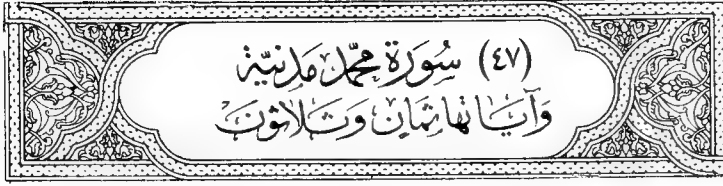 (٤٧) سُورَة محمّد مَدنيّة
وَآيَاتهَا ثمَان وَثلَاثونَ